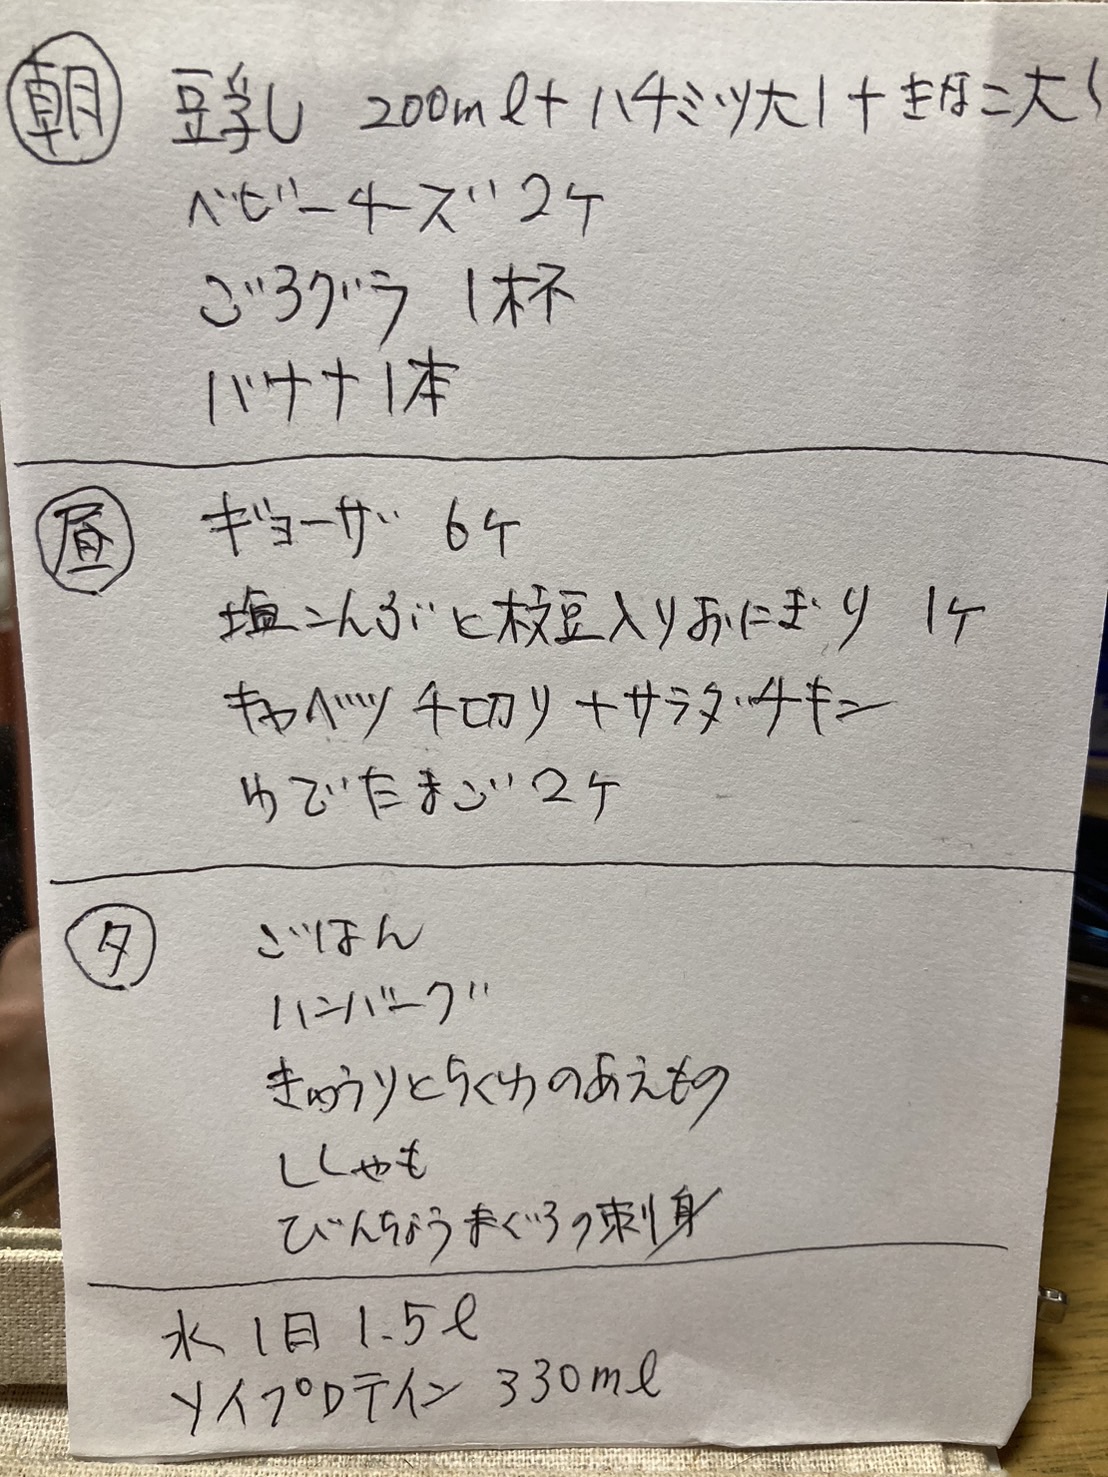 朝 豆乳 200ml+ハチミツ大1+きなこ大1
ベビーチーズ2ケ
ごろグラ 1杯
バナナ1本
昼 ギョーザ 6ケ
塩こんぶと枝豆入りおにぎり 1ケ
キャベツ千切り+サラダチキン
ゆでたまご2ケ
夕 ごはん
ハンバーグ
きゅうりとちくわのあえもの
ししゃも
びんちょうまぐろの刺身
水 1日 1.5l
ソイプロテイン 330ml